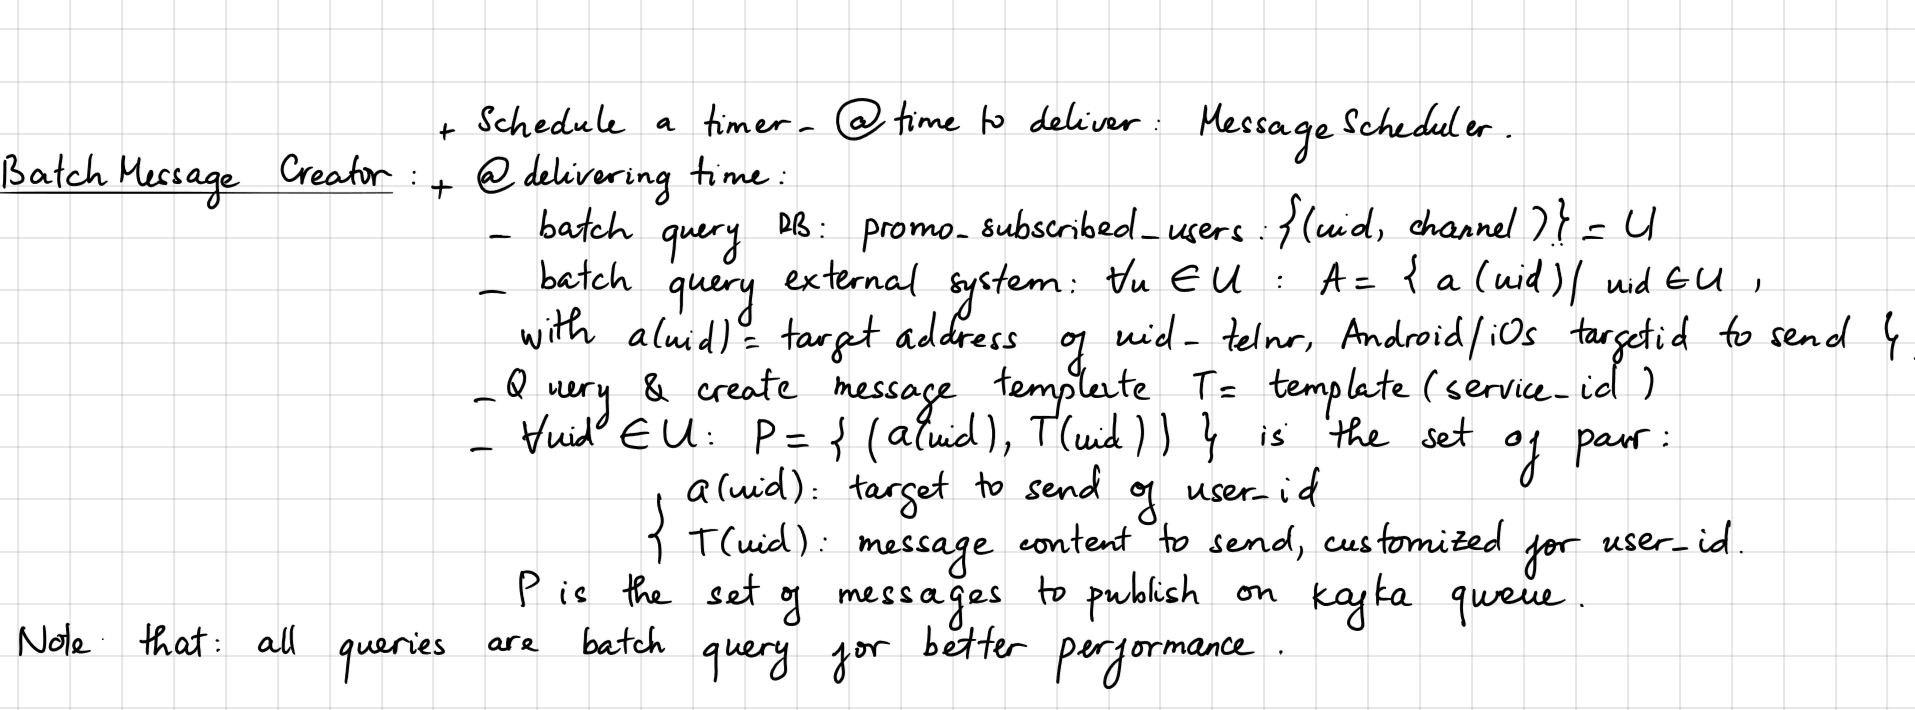 + Schedule a timer - @ time to deliver : MessageScheduler.
Batch Message Creator : + @ delivering time :
- batch query DB : promo_subscribed_users : {(uid, channel)} = U
- batch query external system : ∀u ∈ U : A = { a(uid) | uid ∈ U ,
with a(uid) = target address of uid - telnr, Android/iOs targetid to send }.
- Query & create message template T = template (service_id)
- ∀uid ∈ U : P = { (a(uid), T(uid)) } is the set of pair :
{ a(uid) : target to send of user_id
T(uid) : message content to send, customized for user_id.
P is the set of messages to publish on kafka queue.
Note that : all queries are batch query for better performance.